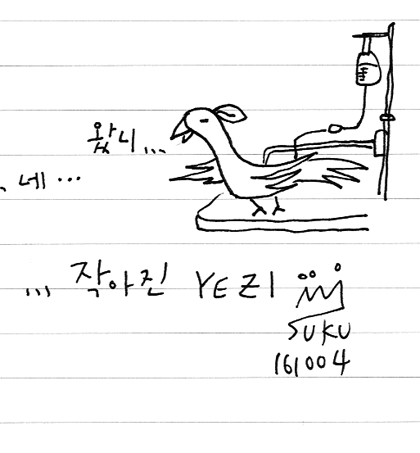 왔니...
. 네...
... 작아진 YEZI
SUKU
161004